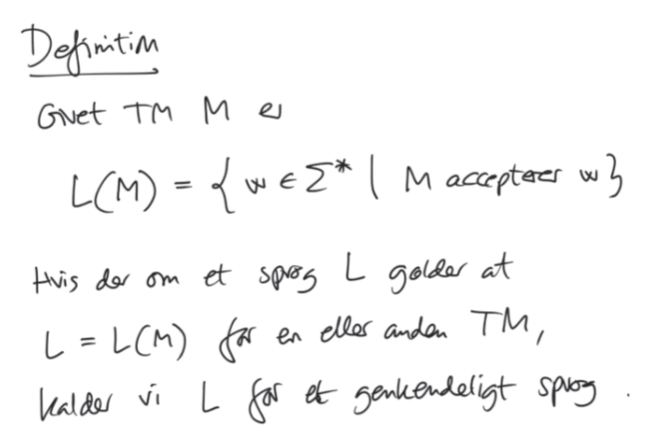 Definition
Givet TM M er
L(M) = { w ∈ Σ* | M accepterer w}
Hvis der om et sprog L gælder at
L = L(M) for en eller anden TM,
kalder vi L for et genkendeligt sprog.